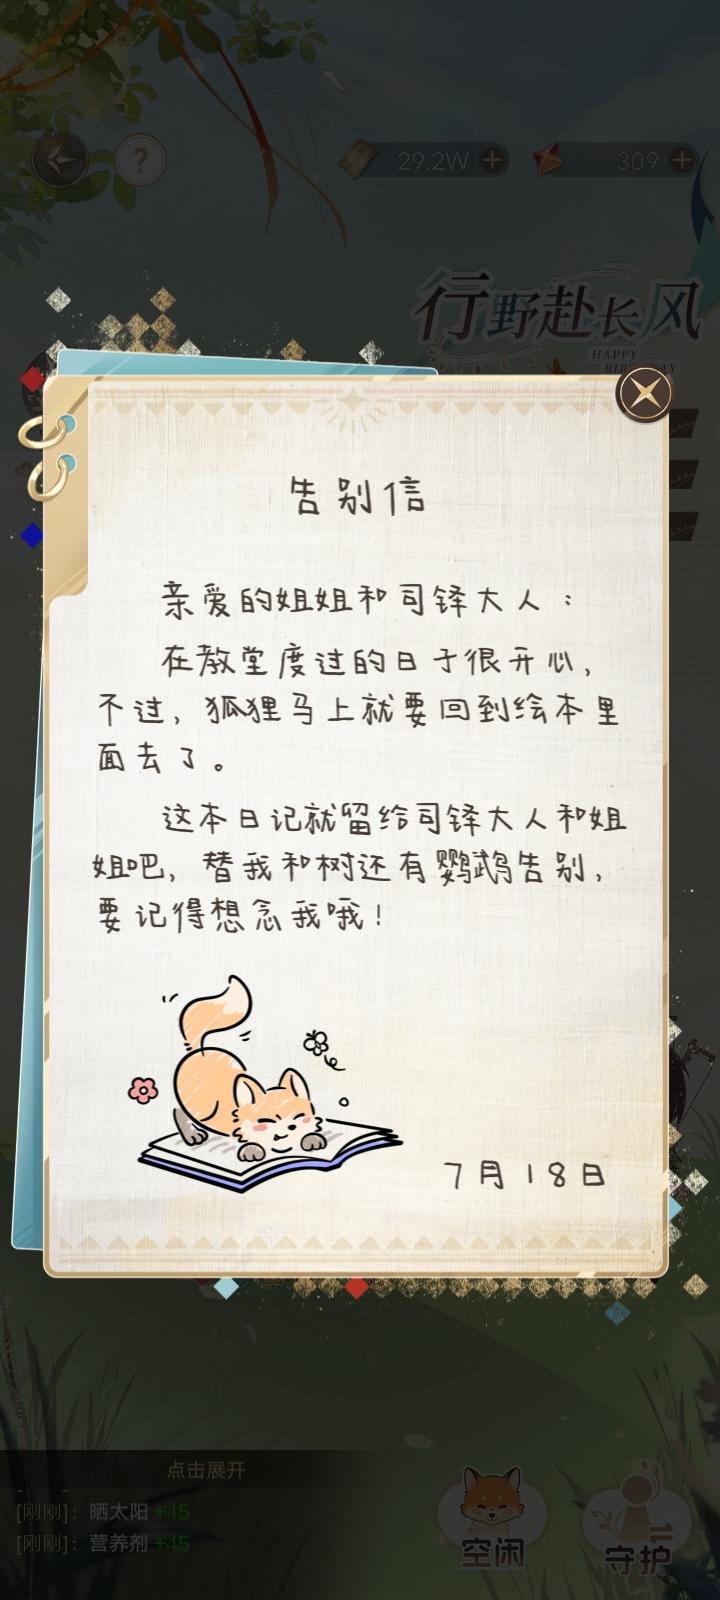 ?
29.2W
309
行野赴长风
HAPPY
BIRTHDAY
告别信
亲爱的姐姐和司铎大人：
在教堂度过的日子很开心，
不过，狐狸马上就要回到绘本里
面去了。
这本日记就留给司铎大人和姐
姐吧，替我和树还有鹦鹉告别，
要记得想念我哦！
7月18日
点击展开
[刚刚]：晒太阳 +45
[刚刚]：营养剂 +45
空闲
守护